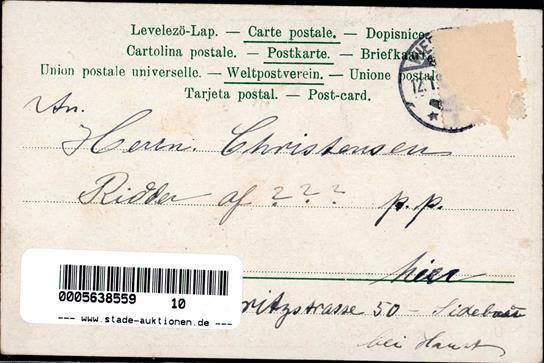 Levelezö-Lap. — Carte postale. — Dopisnice.
Cartolina postale. — Postkarte. — Briefkaart
Union postale universelle. — Weltpostverein. — Unione postale
Tarjeta postal. — Post-card.
An.
Herrn. Christensen
Ridder af ? ? ? p.p.
hier
ritzstrasse 50 – Sidebau
bei
0005638559 10
--- www.stade-auktionen.de ---